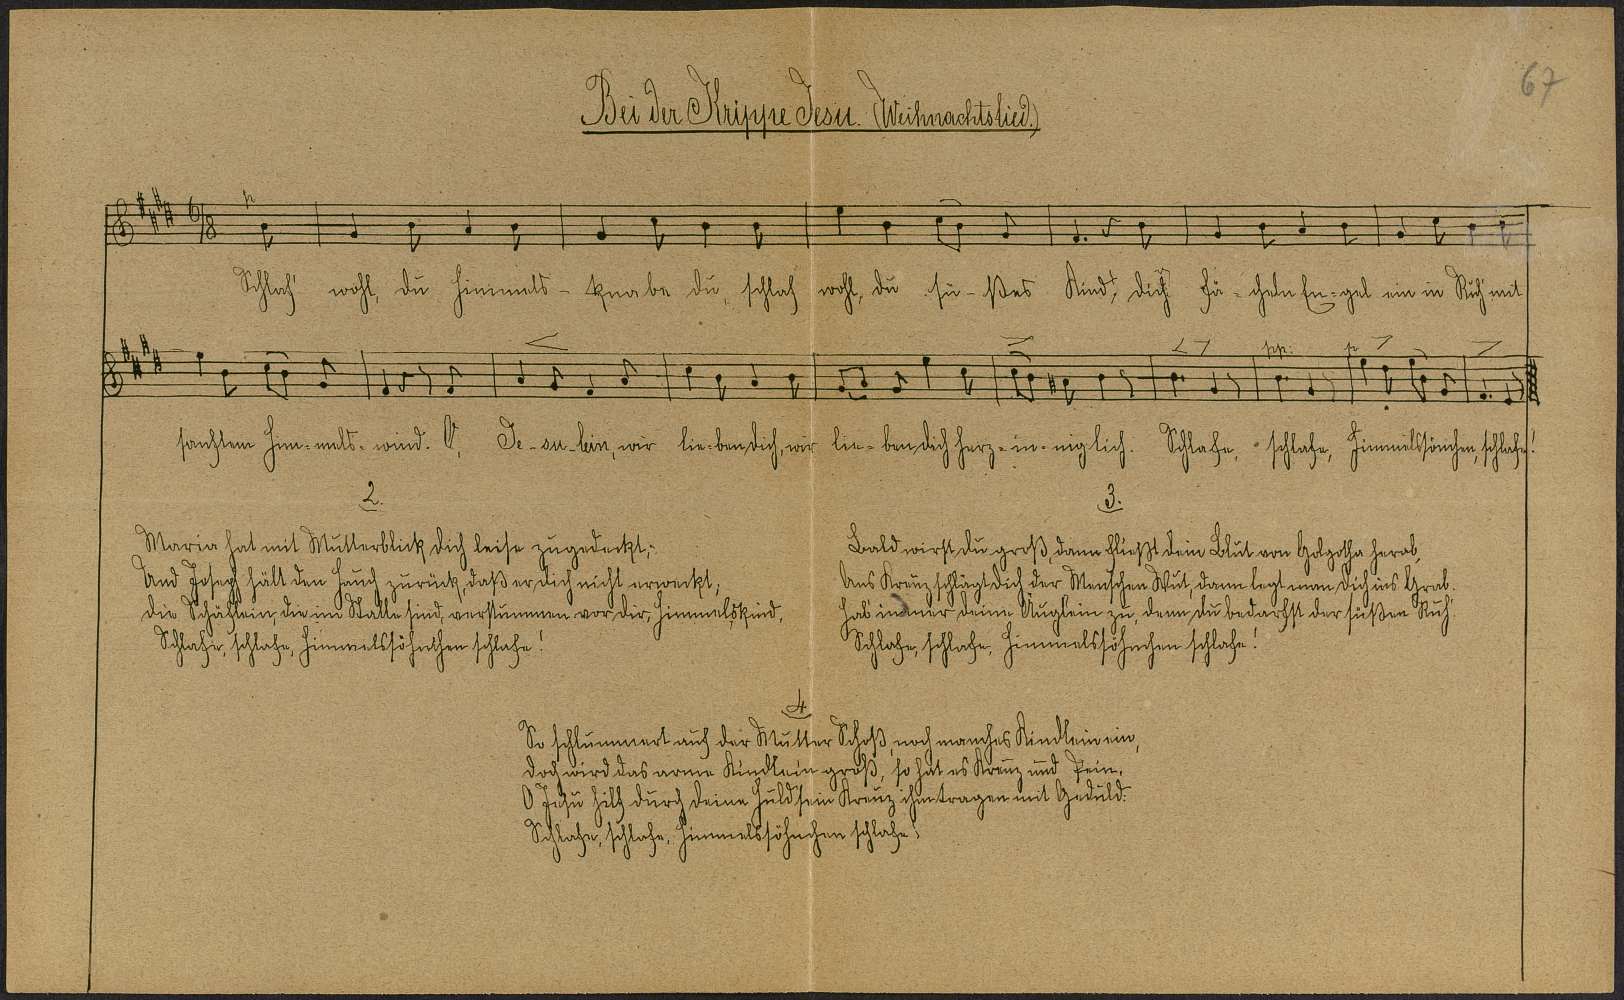 67
Bei der Krippe Jesu. (Weihnachtslied.)
6/8 p
Schlaf' wohl, du Himmels-knabe du, schlaf wohl, du sü-ßes Kind; dich fä-cheln En-gel ein in Ruh' mit
pp. p
sanftem Him-mels-wind. O, Je-su-lein, wir lie-ben dich, wir lie-ben dich herz-in-niglich. Schlafe, schlafe, Himmelssönchen, schlafe!
2.
Maria hat mit Mutterblick dich leise zugedeckt;
Und Joseph hält den Hauch zurück, daß er dich nicht erweckt;
die Schäflein, die im Stalle sind, verstummen vor dir, Himmelskind,
Schlafe, schlafe, Himmelssöhnchen schlafe!
3.
Bald wirst du groß, dann fließt dein Blut von Golgotha herab,
Ans Kreuz schlägt dich der Menschen Wut, dann legt man dich ins Grab.
Hab' immer deine Äuglein zu, denn du bedarfst der süßen Ruh'
Schlafe, schlafe, Himmelssöhnchen schlafe!
4.
So schlummert auf der Mutter Schoß, noch manches Kindlein ein,
doch wird das arme Kindlein groß, so hat es Kreuz und Pein.
O Jesu hilf durch deine Huld sein Kreuz ihm tragen mit Geduld.
Schlafe, schlafe, Himmelssöhnchen schlafe!